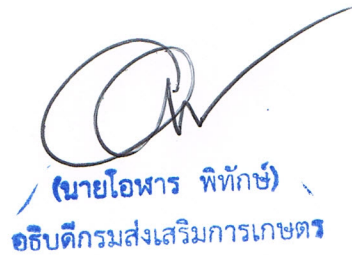 (นายโอฬาร พิทักษ์)
อธิบดีกรมส่งเสริมการเกษตร